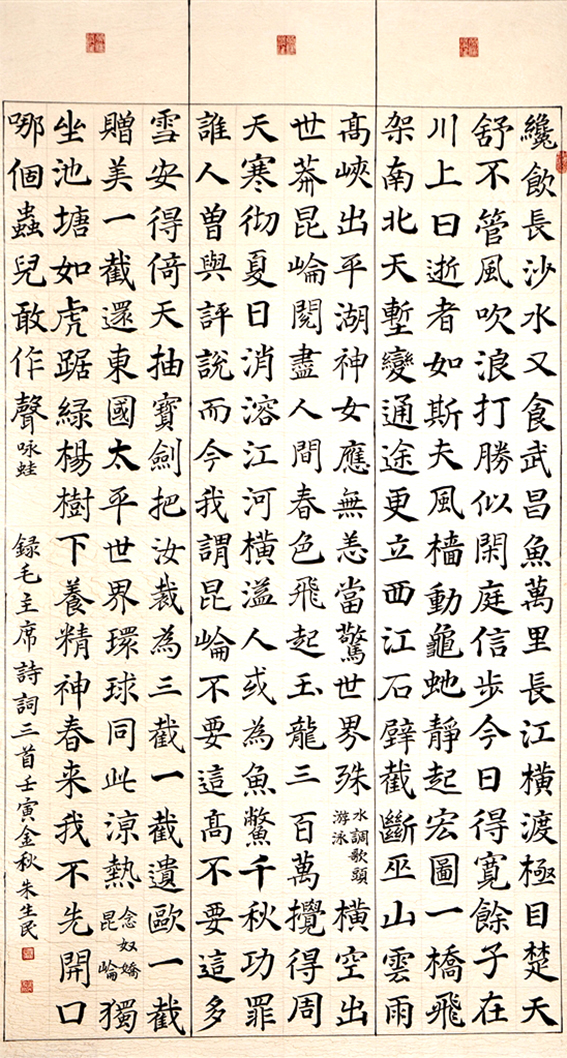 纔飲長沙水又食武昌魚萬里長江橫渡極目楚天
舒不管風吹浪打勝似閑庭信步今日得寬餘子在
川上曰逝者如斯夫風檣動龜虵靜起宏圖一橋飛
架南北天塹變通途更立西江石壁截斷巫山雲雨
高峽出平湖神女應無恙當驚世界殊水調歌頭游泳橫空出
世莽昆崘閱盡人間春色飛起玉龍三百萬攪得周
天寒彻夏日消溶江河橫溢人或為魚鱉千秋功罪
誰人曾與評說而今我謂昆崘不要這高不要這多
雪安得倚天抽寶劍把汝裁為三截一截遺歐一截
贈美一截還東國太平世界環球同此涼熱念奴嬌昆崘獨
坐池塘如虎踞綠楊樹下養精神春来我不先開口
哪個蟲兒敢作聲咏蛙 録毛主席詩詞三首壬寅金秋朱生民